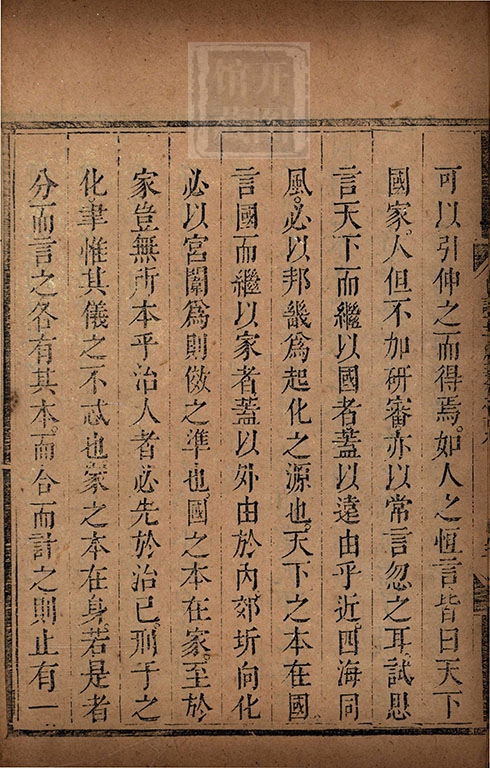 可以引伸之而得焉。如人之恆言皆曰天下
國家。人但不加研審亦以常言忽之耳。試思
言天下而繼以國者蓋以遠由乎近。四海同
風。必以邦畿爲起化之源也。天下之本在國
言國而繼以家者蓋以外由於內。郊圻向化
必以宮闈爲則傚之準也。國之本在家。至於
家豈無所本乎治人者必先於治己。刑于之
化。聿惟其儀之不忒也。家之本在身。若是者
分而言之各有其本。而合而計之則止有一